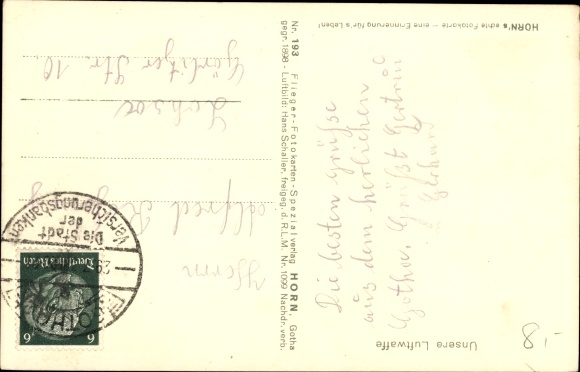 HORN's echte Fotokarte — eine Erinnerung für's Leben!
Die besten Grüße
aus dem herlichen
Gotha. Grüßt Gertrud
Unsere Luftwaffe
Nr. 193 Flieger-Fotokarten-Spezialverlag HORN, Gotha
gegr. 1898 - Luftbild: Hans Schaller, freigeg. d. R.L.M. Nr. 1099 Nachdr. verb.
Herrn
Alfred
Görlitzer Str. 10.
Die Stadt
der
Versicherungsbanken
GOTHA
Deutsches Reich
6 6
-.8